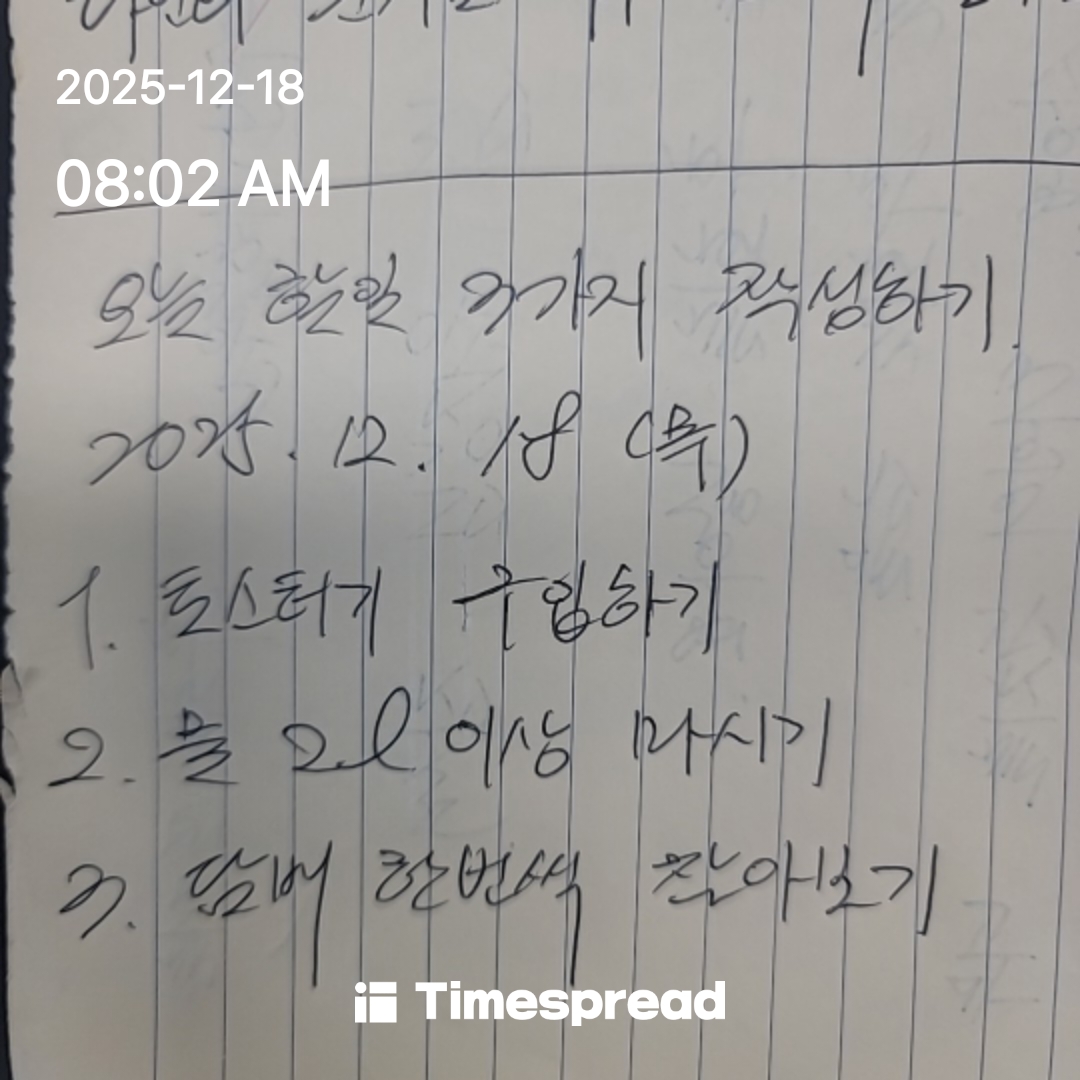 2025-12-18
08:02 AM
오늘 할일 3가지 작성하기.
2025. 12. 18 (목)
1. 토스터기 구입하기
2. 물 2l 이상 마시기
3. 담배 한번씩 참아보기
Timespread